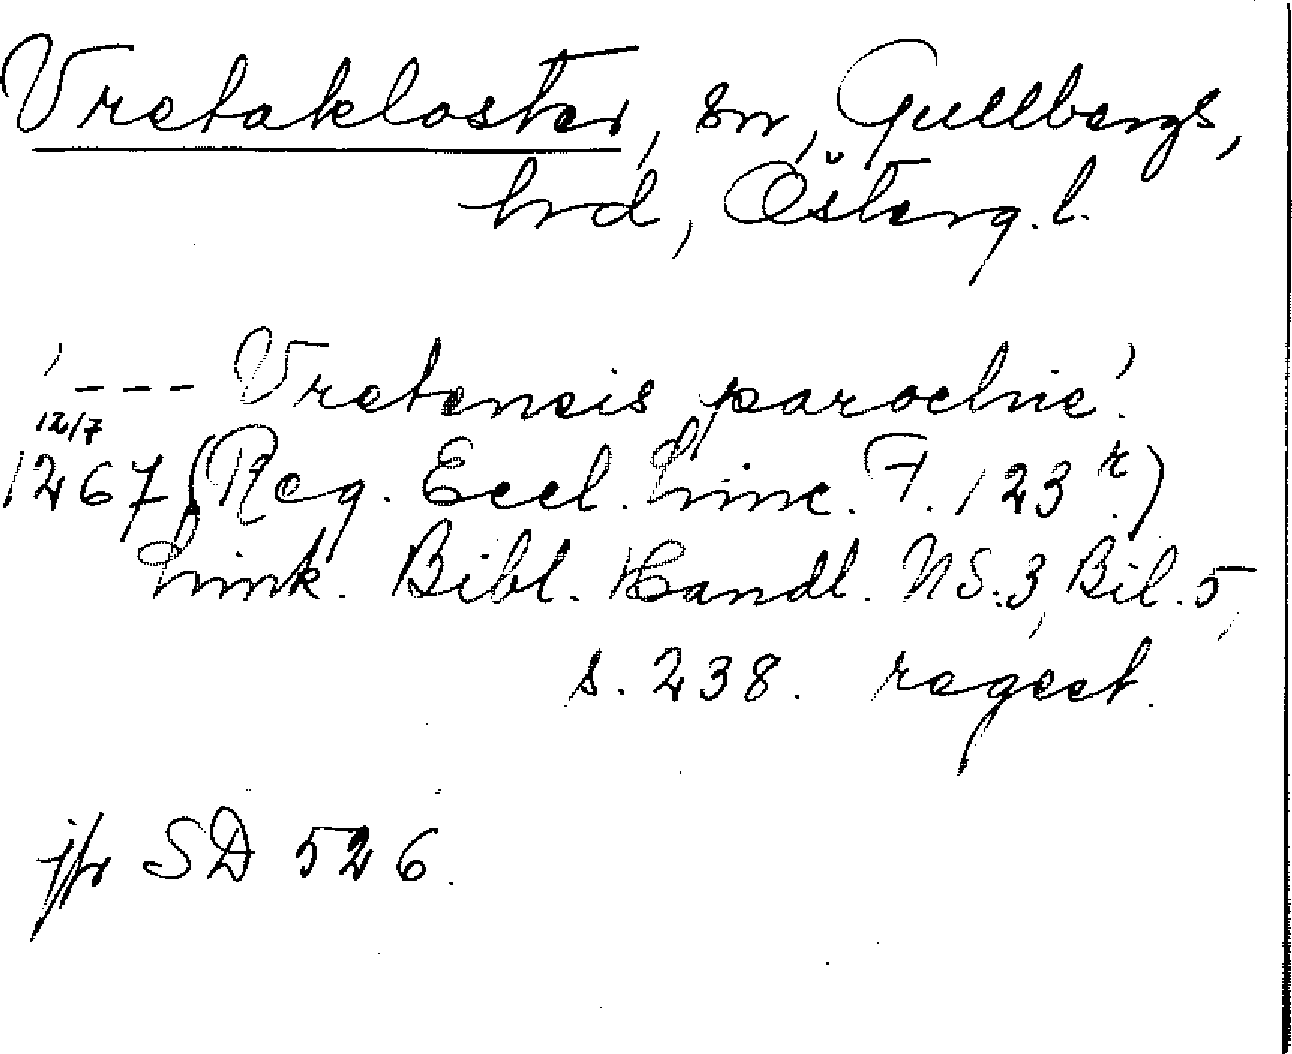 Vretakloster, sn, Gullbergs,
hrd, Österg.l.
'--- Vretensis parochie'.
12/7
1267 (Reg. Eccl. Linc. F. 123 r.)
Link. Bibl. Handl. NS.3, Bil. 5,
s. 238. regest.
jfr SD 526.